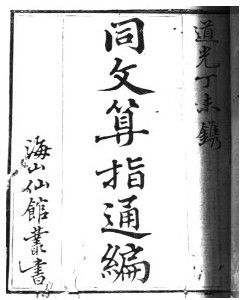 道光丁未鐫
同文算指通編
海山仙館叢書